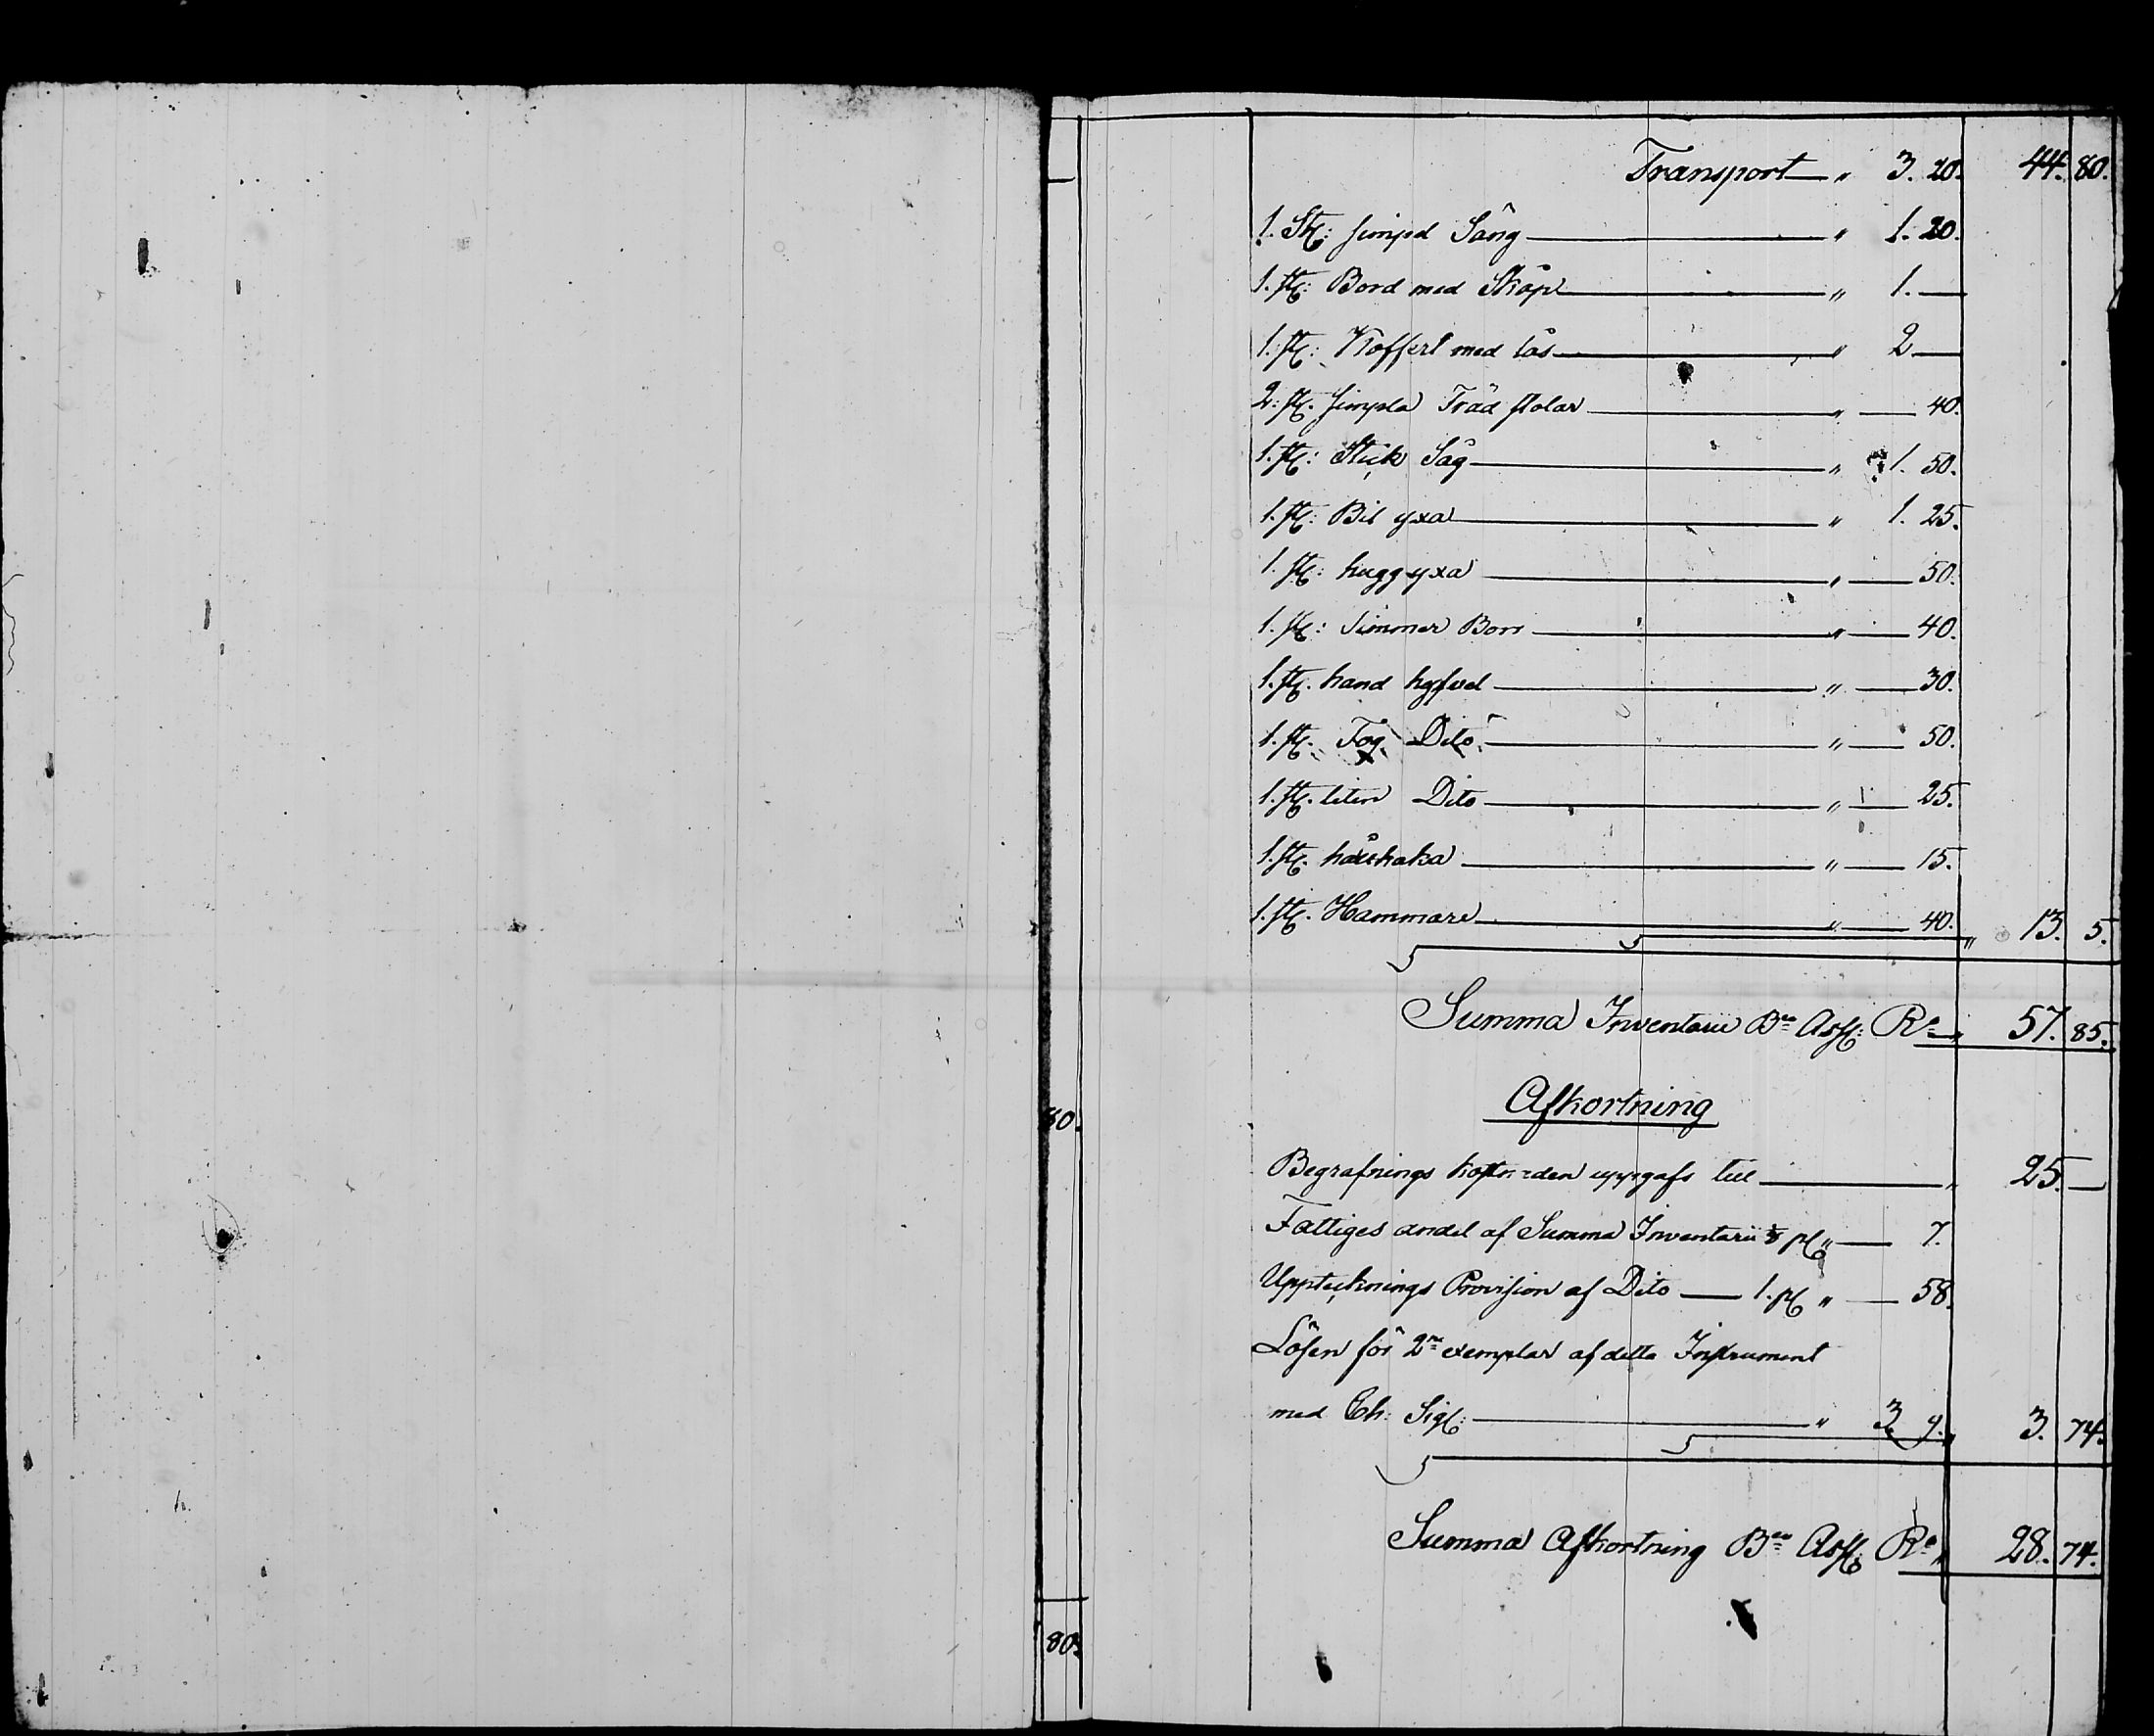 Transport — " 3. 20. 44. 80.
1. St: simpel Säng — " 1. 20.
1. st: Bord med Skåp — " 1. —
1. st: Koffert med lås — " 2 —
2. st. simpla Träd stolar — " — 40.
1. st: Stick Såg — " 1. 50.
1. st: Bil yxa — " 1. 25.
1. st: hugg yxa — " — 50.
1. st: Timmer Borr — " — 40.
1. st. hand hyfvel — " — 30.
1. st. Fog Dito — " — 50.
1. st. liten Dito — " — 25.
1. st. — " — 15.
1. st. Hammare — " — 40. " 13. 5.
Summa Inventarii Bco Assg: Ro " 57. 85.
Afkortning
Begrafnings kostn=den uppgafs till — " 25. —
Fattiges andel af Summa Inventarii ⅛ pC " — 7.
Upptecknings Provision af Dito — 1. pC " — 58.
Lösen för 2ne exemplar af detta Instrument
med Ch: Sig: — " 3 9. " 3. 74.
Summa Afkortning Bco Assg: Ro " 28. 74.
80.
80.